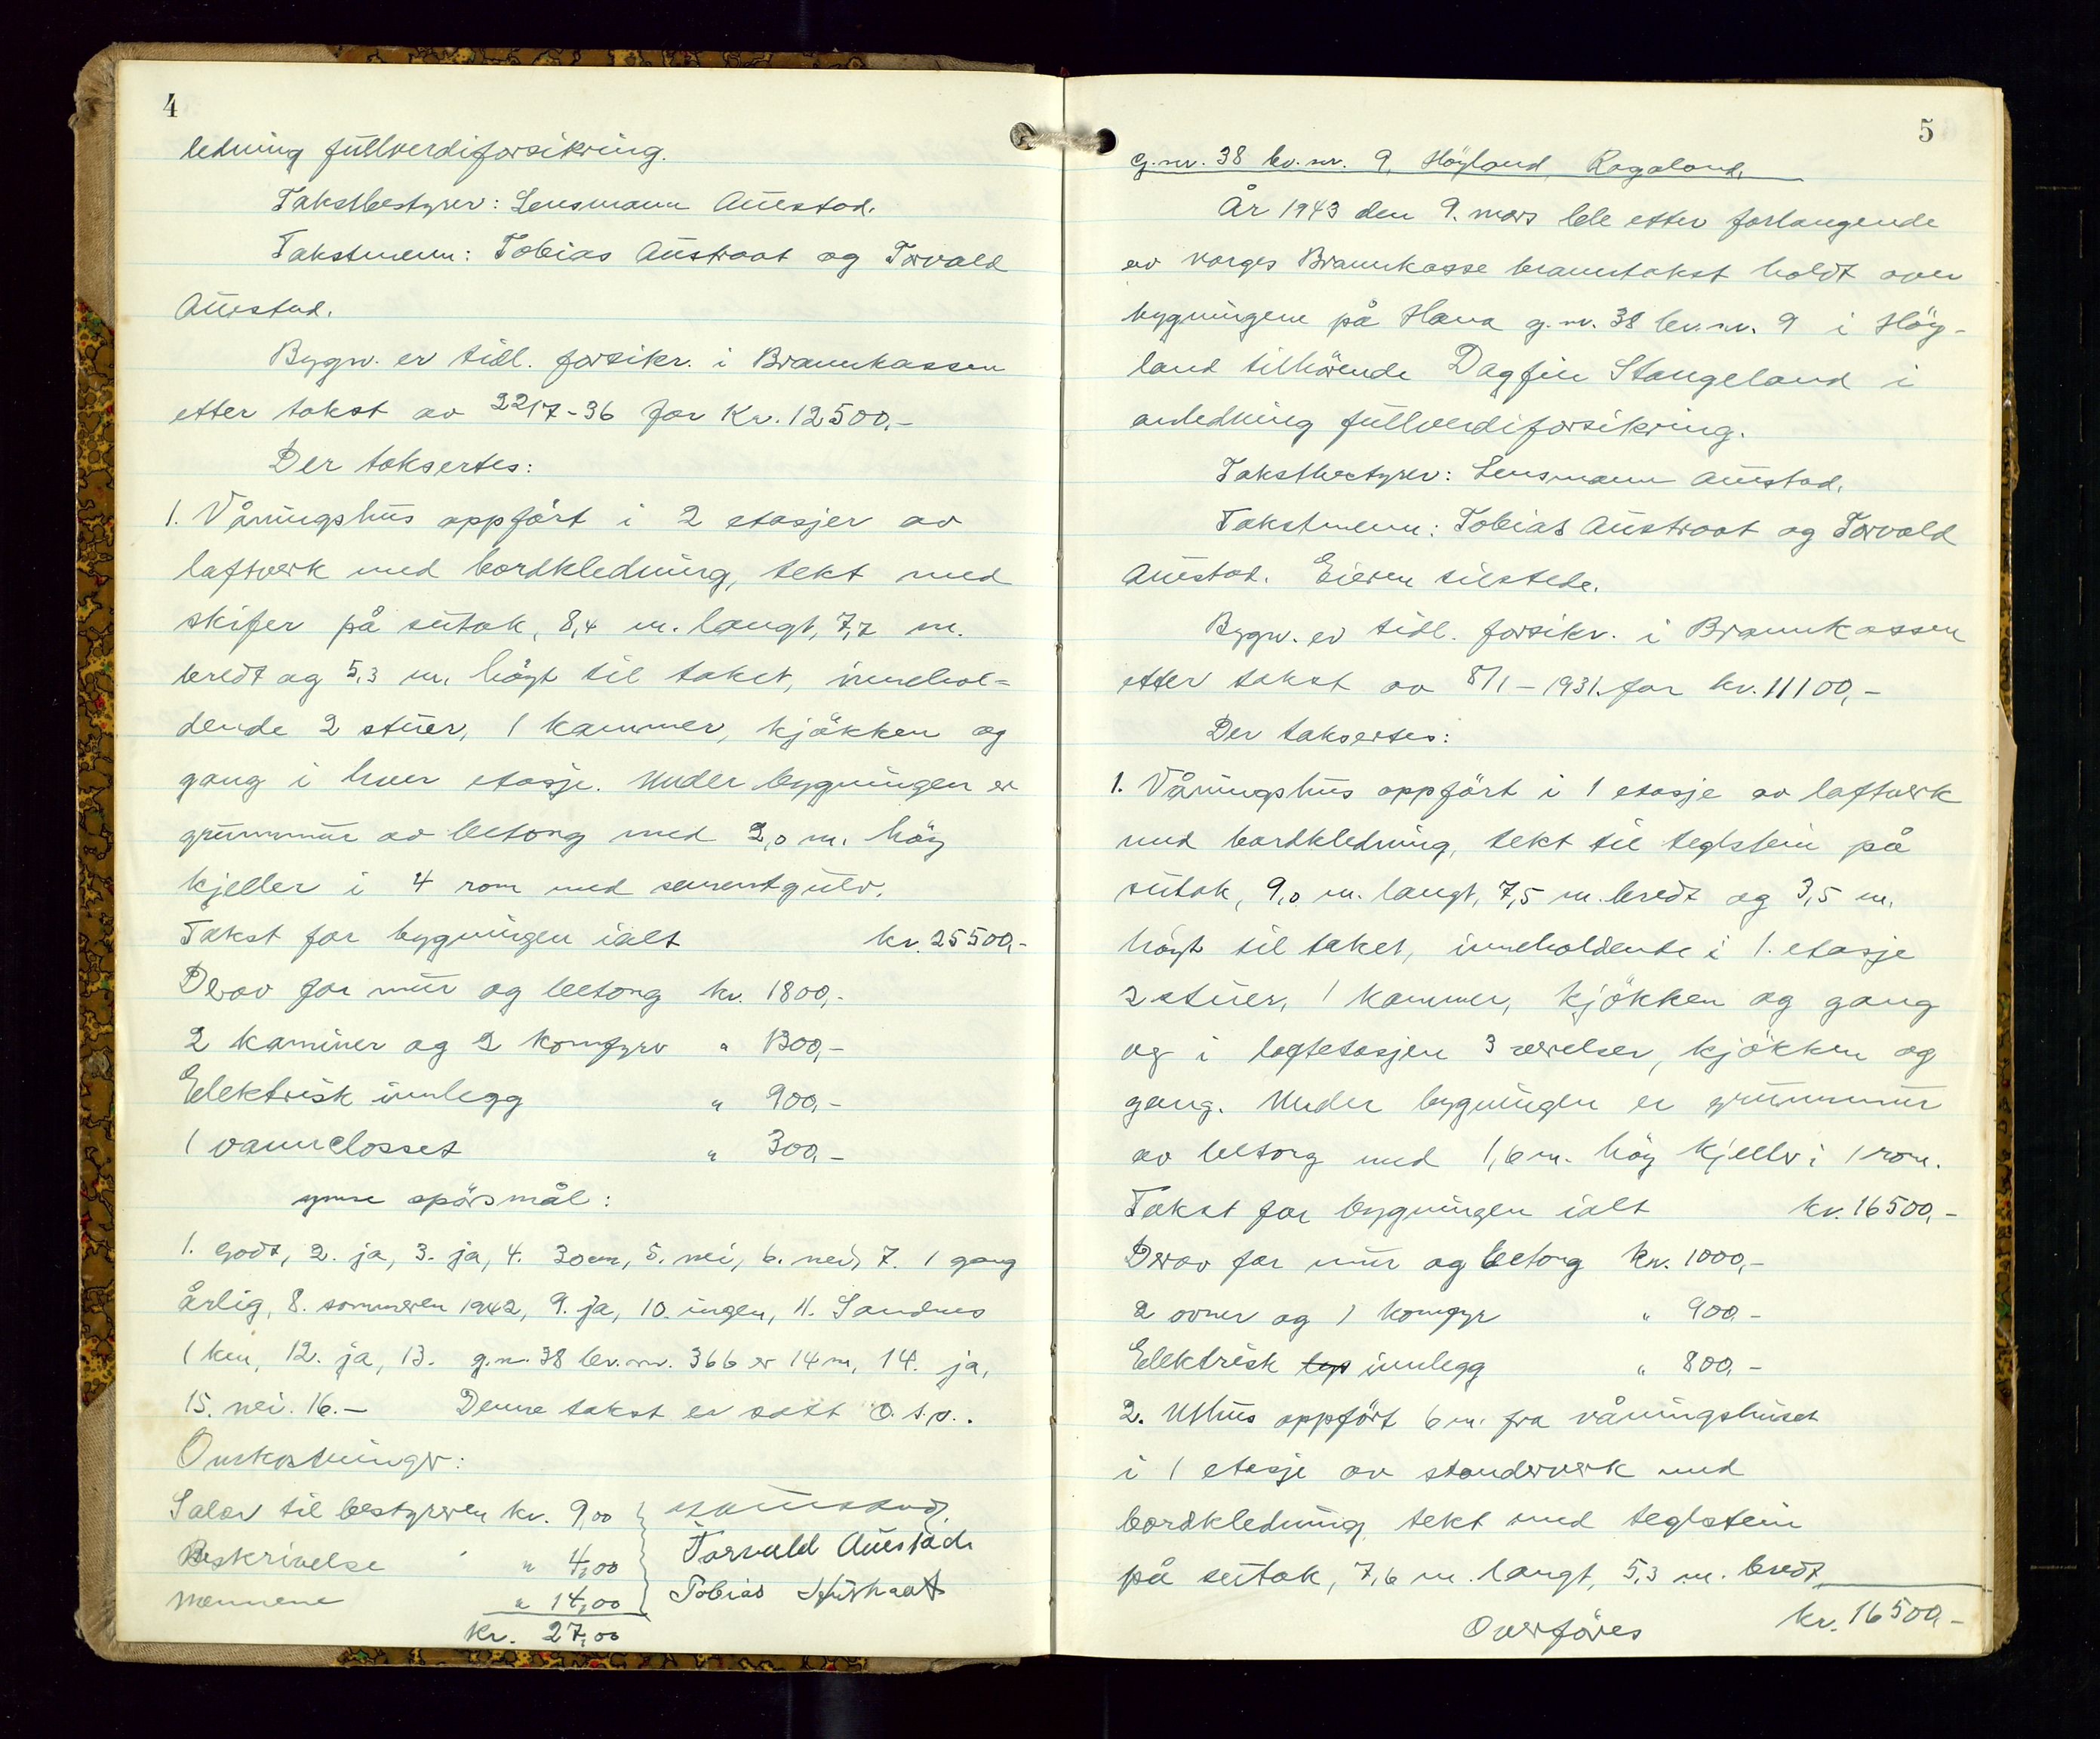 4
ledning fullverdiforsikring.
Takstbestyrer: Lensmann Auestad.
Takstmenn: Tobias Austraat og Torvald
Auestad.
Bygn. er tidl. forsikr. i Brannkassen
etter takst av 22/7-36 for Kr. 12500,-
Der taksertes:
1. Våningshus oppført i 2 etasjer av
laftverk med bordkledning, tekt med
skifer på sutak, 8,4 m. langt, 7,7 m.
bredt og 5,3 m. högt til taket, innehol-
dende 2 stuer, 1 kammer, kjökken og
gang i hver etasje. Under bygningen er
grunnmur av betong med 2,0 m. höy
kjeller i 4 rom med sementgulv.
Takst for bygningen ialt kr. 25500,-
Derav for mur og betong kr. 1800,-
2 kaminer og 2 komfyrer " 1300,-
Elektrisk innlegg " 900,-
1 vannclosset " 300,-
ymse spörsmål:
1. godt, 2. ja, 3. ja, 4. 30cm, 5. nei, 6. nei, 7. 1 gang
årlig, 8. sommeren 1942, 9. ja, 10. ingen, 11. Sandnes
1 km, 12. ja, 13. g.nr. 38 br.nr. 366 er 14 m, 14. ja,
15. nei. 16.- Denne takst er satt o.s.v..
Omkostninger:
Salær til bestyreren kr. 9,00
Beskrivelse " " 4,00
Mennene " 14,00
kr. 27,00
Auestad.
Torvald Auestad
Tobias Austraat
5
G.nr. 38 br.nr. 9, Höyland, Rogaland.
År 1943 den 9. mars ble etter forlangende
av Norges Brannkasse branntakst holdt over
bygningene på Hana g.nr. 38 br.nr. 9 i Höy-
land tilhörende Dagfin Stangeland i
anledning fullverdiforsikring.
Takstbestyrer: Lensmann Auestad.
Takstmenn: Tobias Austraat og Torvald
Auestad. Eieren tilstede.
Bygn. er tidl. forsikr. i Brannkassen
etter takst av 8/1-1931. for kr. 11100,-
Der taksertes:
1. Våningshus oppfört i 1 etasje av laftverk
med bordkledning, tekt til teglstein på
sutak, 9,0 m. langt, 7,5 m. bredt og 3,5 m.
högt til taket, inneholdende i 1. etasje
2 stuer, 1 kammer, kjökken og gang
og i loftetasjen 3 værelser, kjökken og
gang. Under bygningen er grunnmur
av betong med 1,6 m. höy kjeller i 1 rom.
Takst for bygningen ialt kr. 16500,-
Derav for mur og betong kr. 1000,-
2 ovner og 1 komfyr " 900,-
Elektrisk innlegg " 800,-
2. Uthus oppfört 6 m. fra våningshuset
i 1 etasje av standerverk med
bordkledning tekt med teglstein
på sutak, 7,6 m. langt, 5,3 m. bredt
Overföres kr. 16500,-